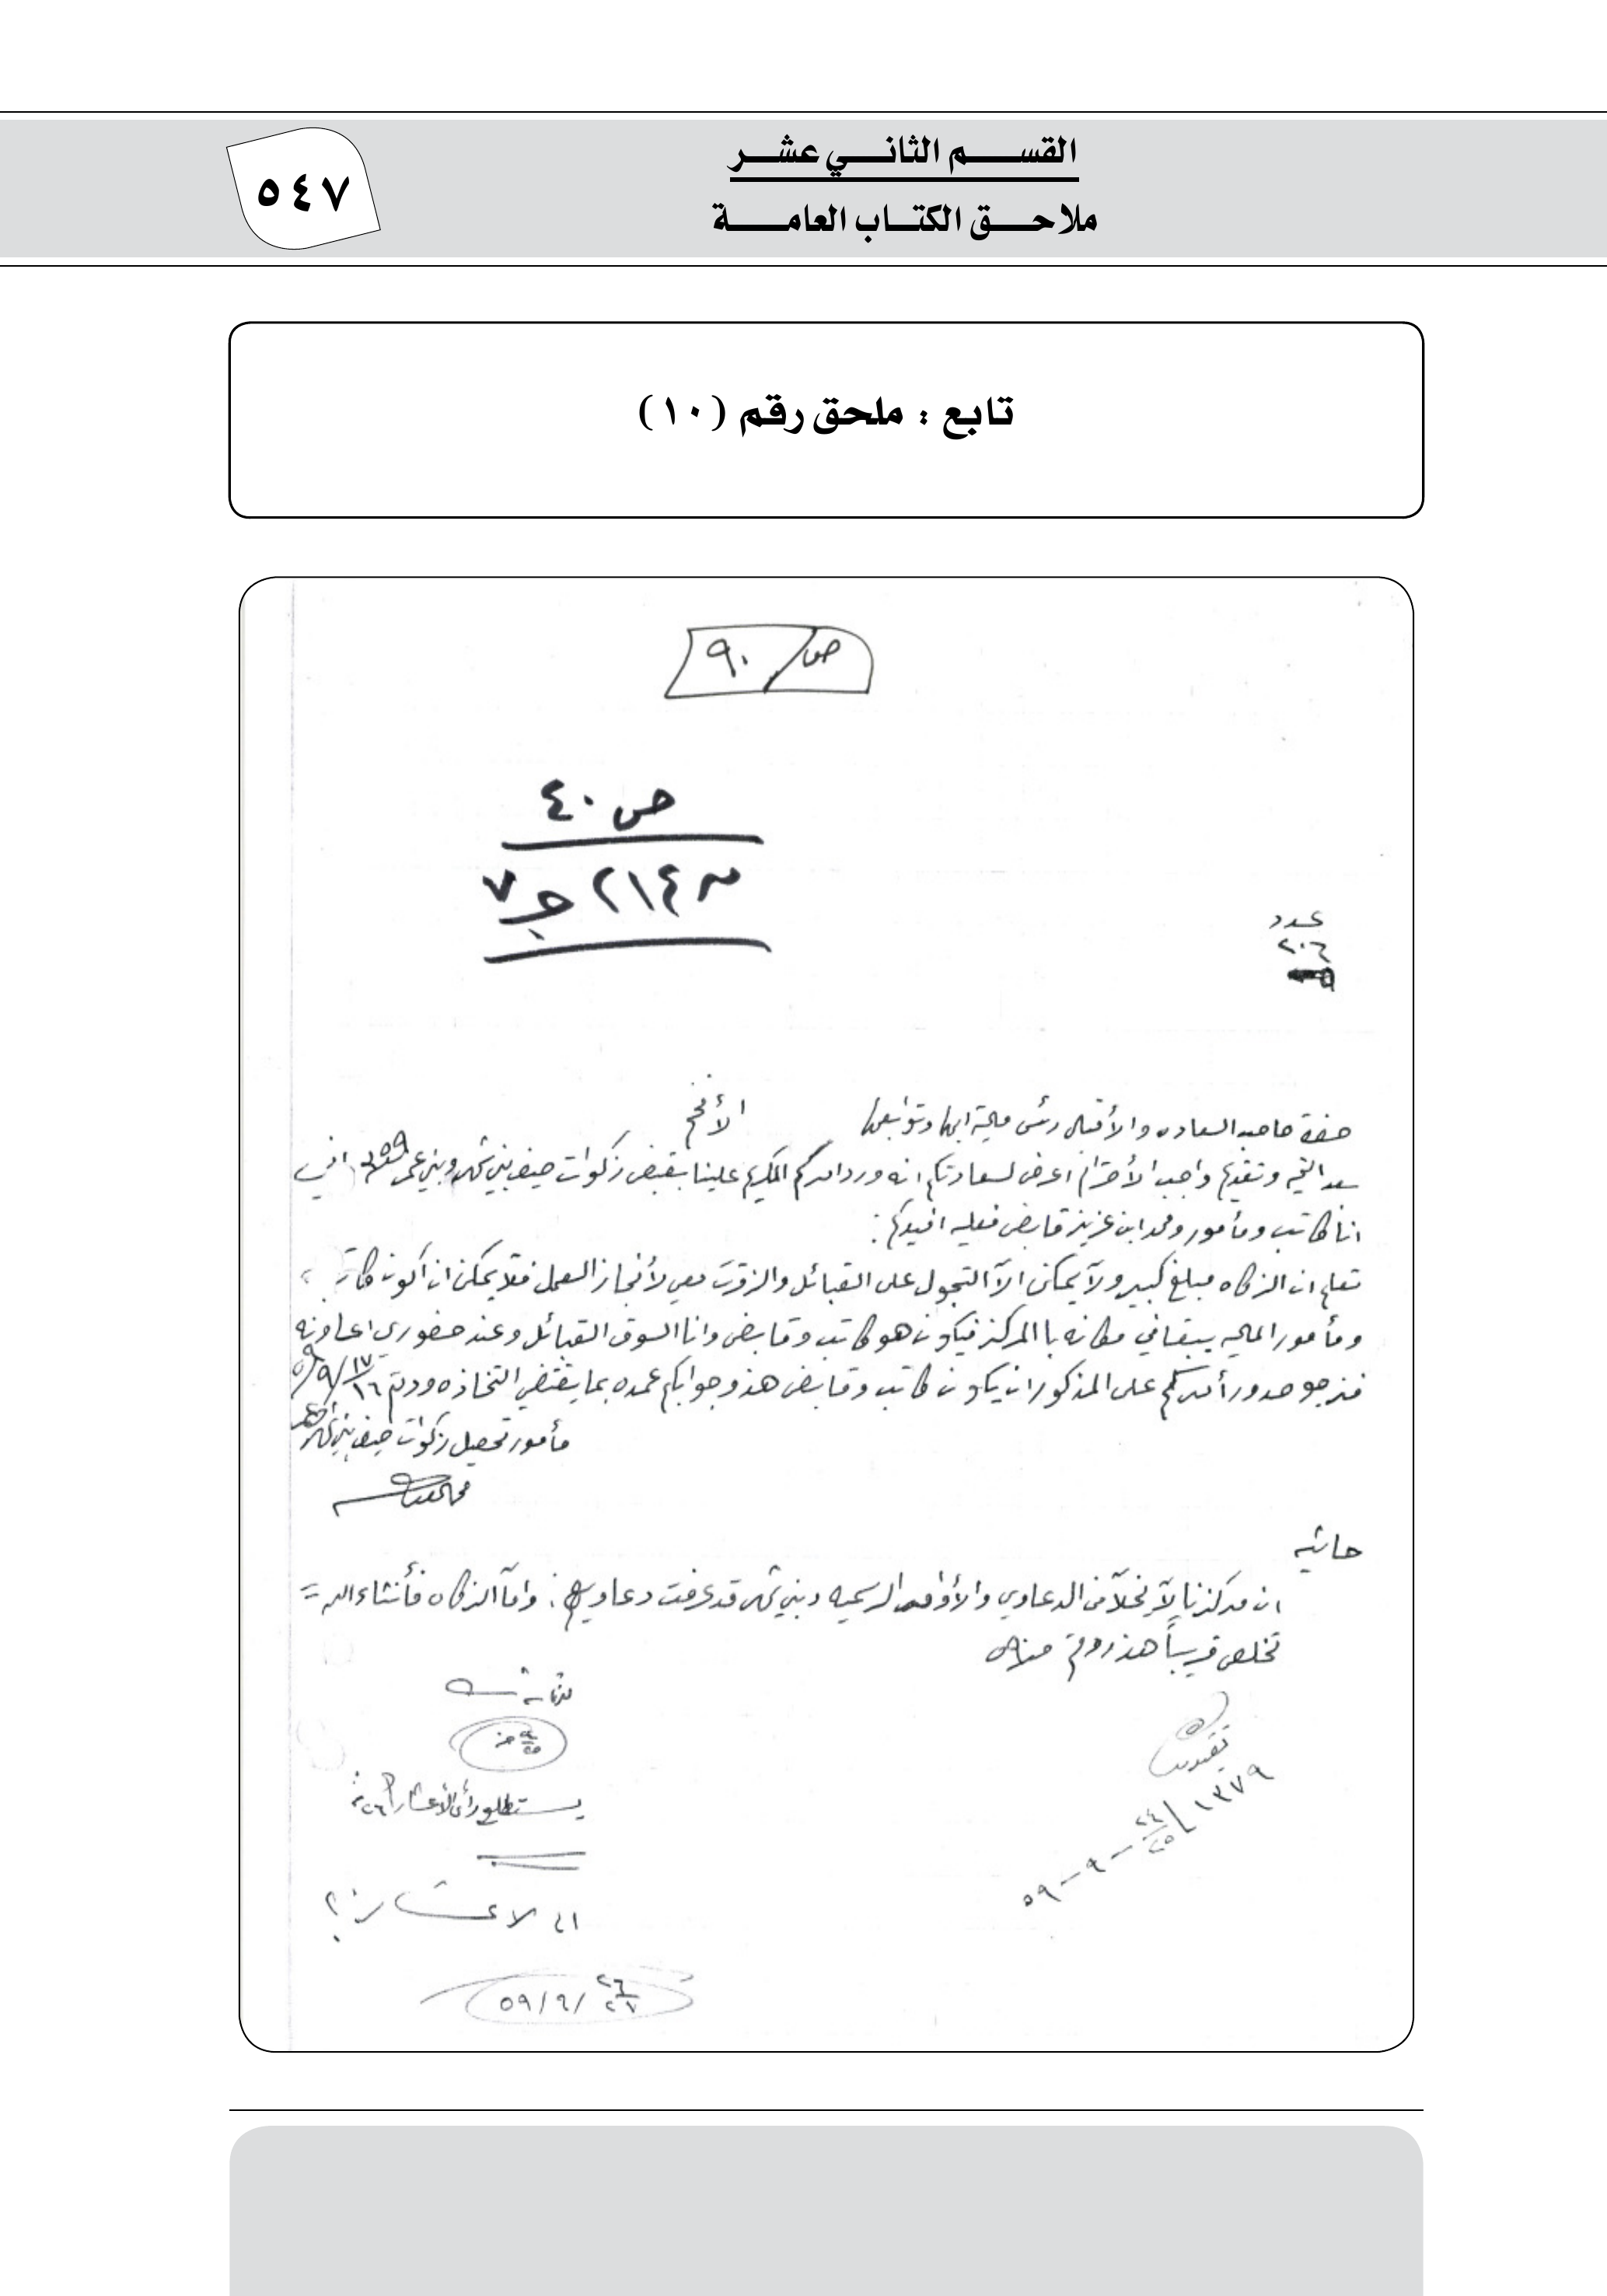 القسم الثاني عشر
ملاحق الكتاب العامة
٥٤٧
تابع : ملحق رقم (١٠)
ص/ ٩٠
ص ٤٠
٢١٤ ج ٧
عدد
٢٠٦
حضرة صاحب السعاده والأقبال رئس مالية ابها وتوابعها الأفخم
بعد التحيه وتقديم واجب الأحترام اعرض لسعادتكم انه ورد امركم الكريم علينا بقبض زكوات صيف بني شهر وبني عمر اني
انا كاتب ومأمور ومحمد ابن عزيز قابض فعليه افيدكم :
تعلم ان الزكاه مبلغ كبير ولا يمكن الا التجول على القبائل والزقرت معي لأنجاز العمل فلا يمكن ان أكون كاتب
ومأمور الماليه يبقا في مكانه با المركز فيكون هو كاتب وقابض وانا اسوق القبائل وعند حضوري اعاونه
فنرجو صدور أمركم على المذكور ان يكون كاتب وقابض هذ وجوابكم عمده بما يقتضي اتخاذه ودمتم ١٧/١٦/٩/٥٩
مأمور تحصيل زكوات صيف بني شهر
حاشيه
ان مركزنا لا يخلا من الدعاوي والأوامر الرسميه وبني شهر قد عرفت دعاويهم : واما الزكاه فأنشاء الله =
تخلص قريباً هذ ودمتم
١٣٧٩
٢٤/٢٥ – ٩ – ٥٩
يستطلع رأي الأعشار
الى الاعشار
٢٦/٢٧ /٩/ ٥٩